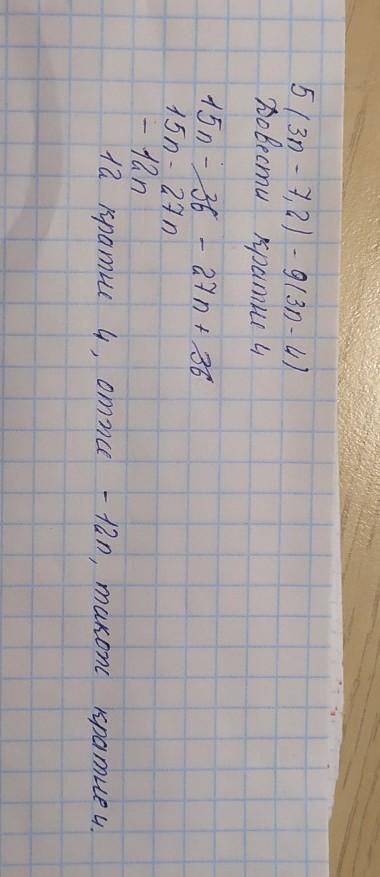 5(3n - 7,2) - 9(3n - 4)
Довести кратне 4
15n - 36 - 27n + 36
15n - 27n
- 12n
12 кратне 4, отже - 12n, також кратне 4.